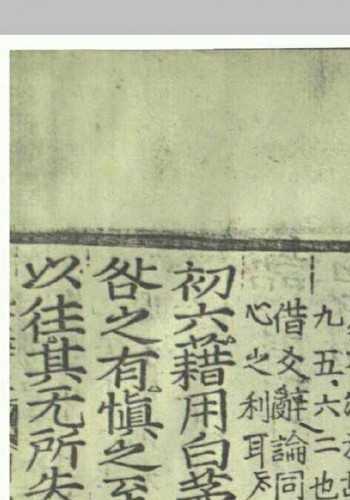 九五六二也
借爻辭論同
心之利耳
初六藉用白茅
咎之有愼之至
以往其无所失